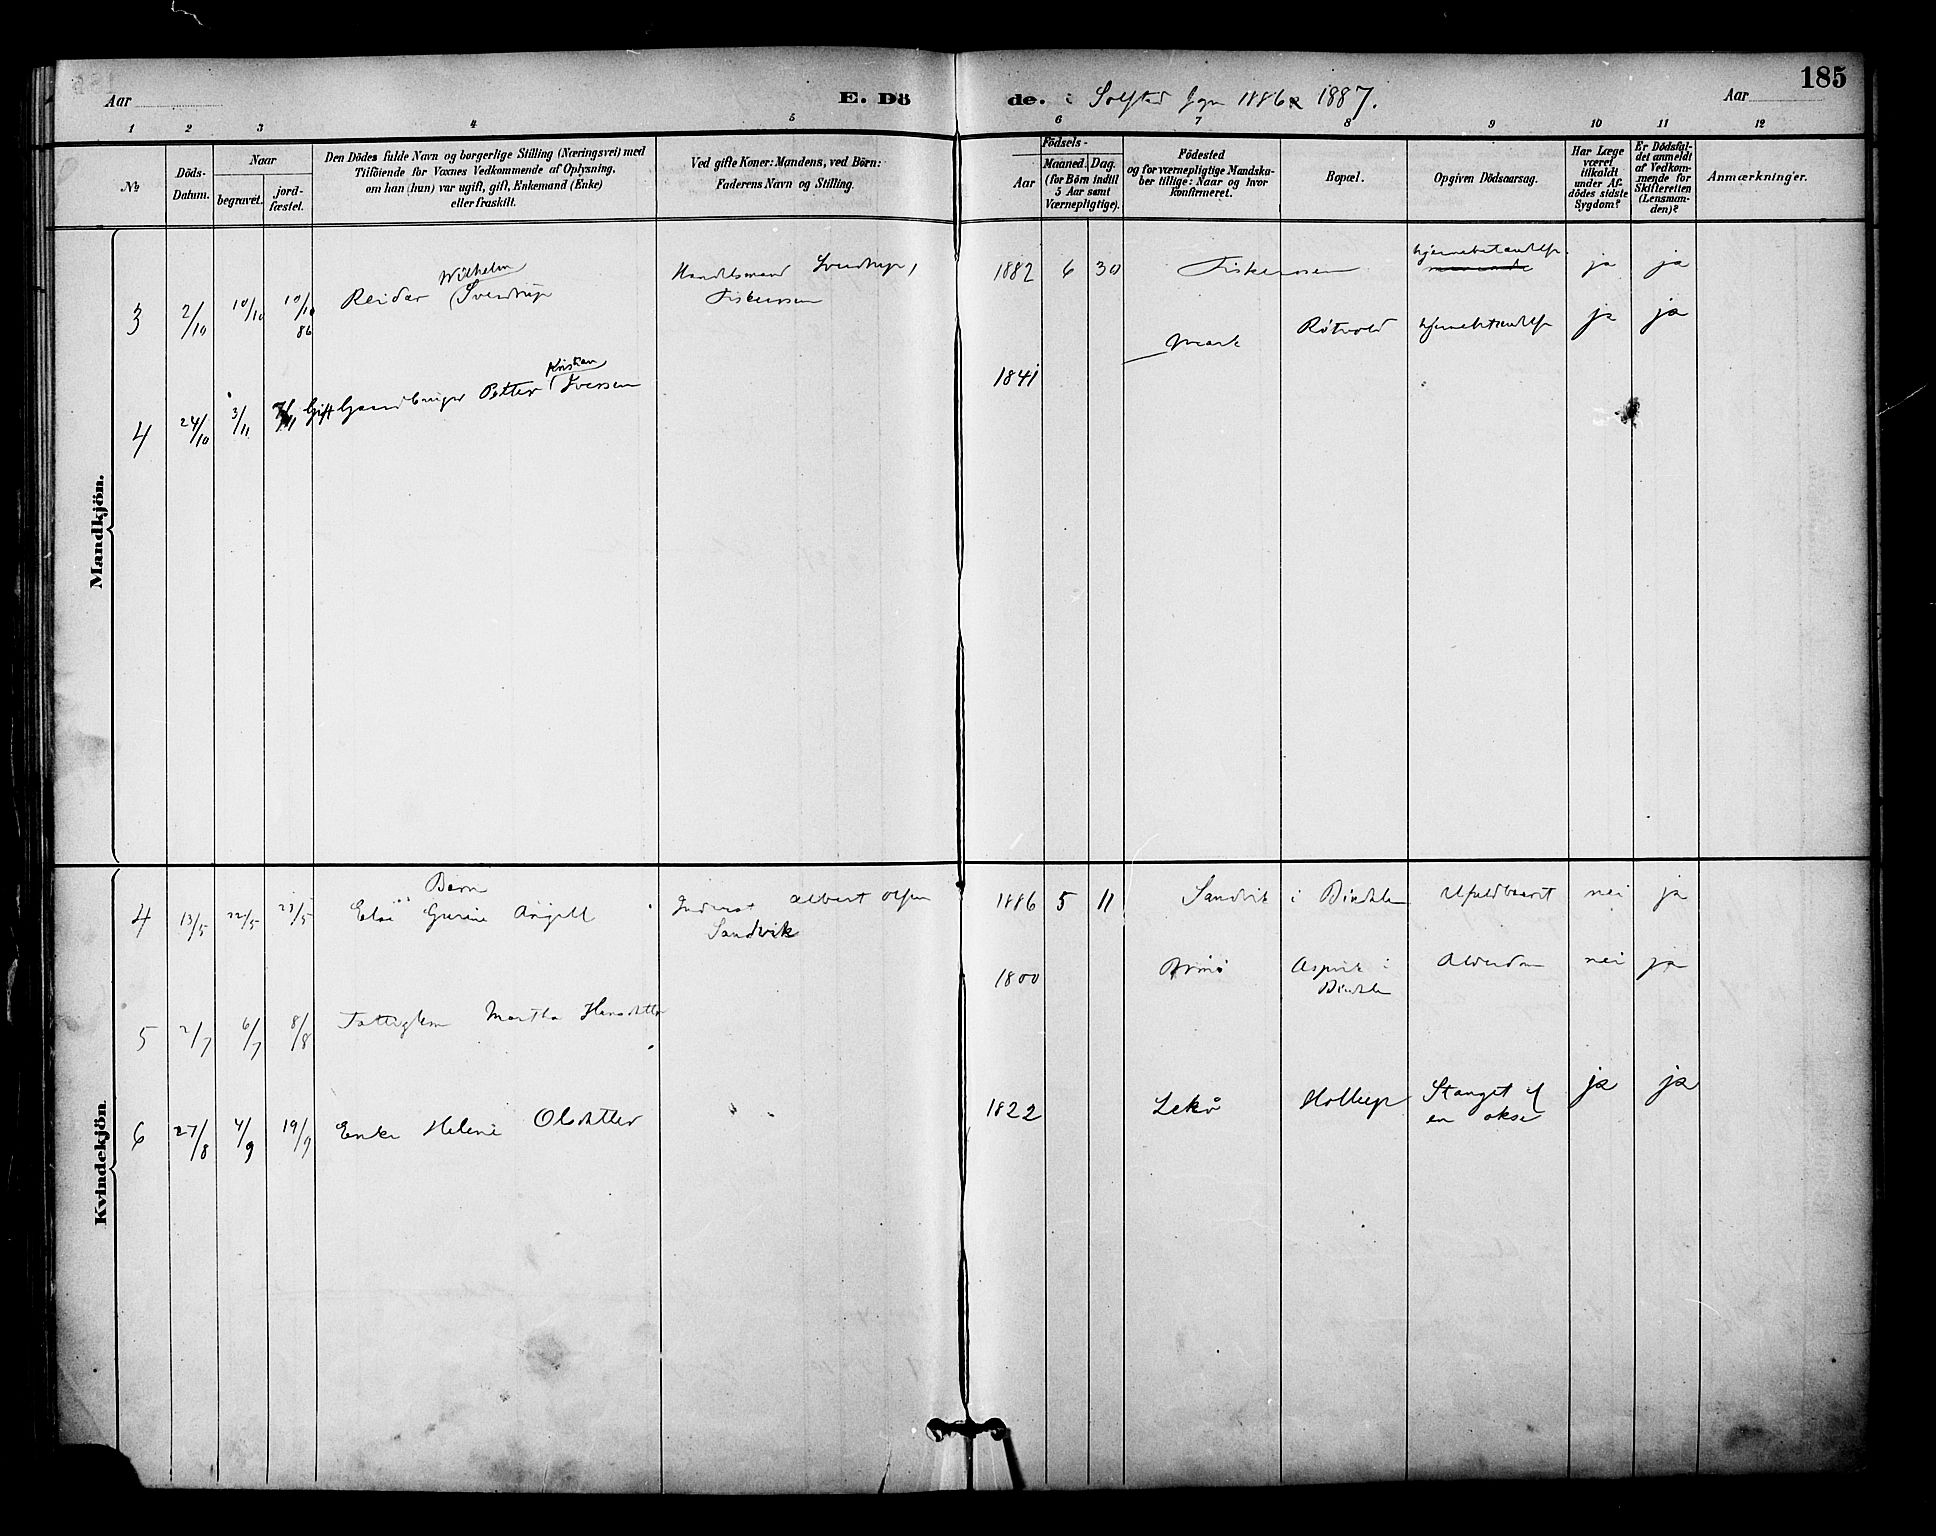 185
Aar
E. Dö de. i Solstad Sogn 1886 & 1887.
Aar
1 2 3 4 5 6 7 8 9 10 11 12
№
Döds-
Datum.
Naar
begravet.
jord-
fæstet.
Den Dödes fulde Navn og borgerlige Stilling (Næringsvei) med
Tilföiende for Voxnes Vedkommende af Oplysning,
om han (hun) var ugift, gift, Enkemand (Enke)
eller fraskilt.
Ved gifte Koner: Mandens, ved Börn:
Faderens Navn og Stilling.
Födsels-
Aar
Maaned. Dag.
(for Börn indtil
5 Aar samt
Værnepligtige).
Födested
og for værnepligtige Mandska-
ber tillige: Naar og hvor
konfirmeret.
Bopæl.
Opgiven Dödsaarsag.
Har Læge
været
tilkaldt
under Af-
dödes sidste
Sygdom?
Er Dödsfal-
det anmeldt
af Vedkom-
mende for
Skifteretten
(Lensman-
den)?
Anmærkninger.
Mandkjön.
3 2/10 10/10 10/10 86 Reidar Wilhelm Sverdrup Handelsmand Sverdrup, 1882 6 30 ja ja
4 24/10 3/11 7/11 Gift Petter Kristian Iversen 1841 ja ja
Kvindekjön
Barn
4 13/5 22/5 23/5 Else Gurine Angell Inderst Albert Olsen 1886 5 11 Sandvik i Bindalen Ufuldbaaret nei ja
Sandvik
5 2/7 6/7 8/8 Fattiglem Martha Hansdatter 1800 Aspvik i Alderdom nei ja
Bindalen
6 27/8 4/9 19/9 Enke Helene Olsdatter 1822 Lekø Holstep Stanget af ja ja
en okse